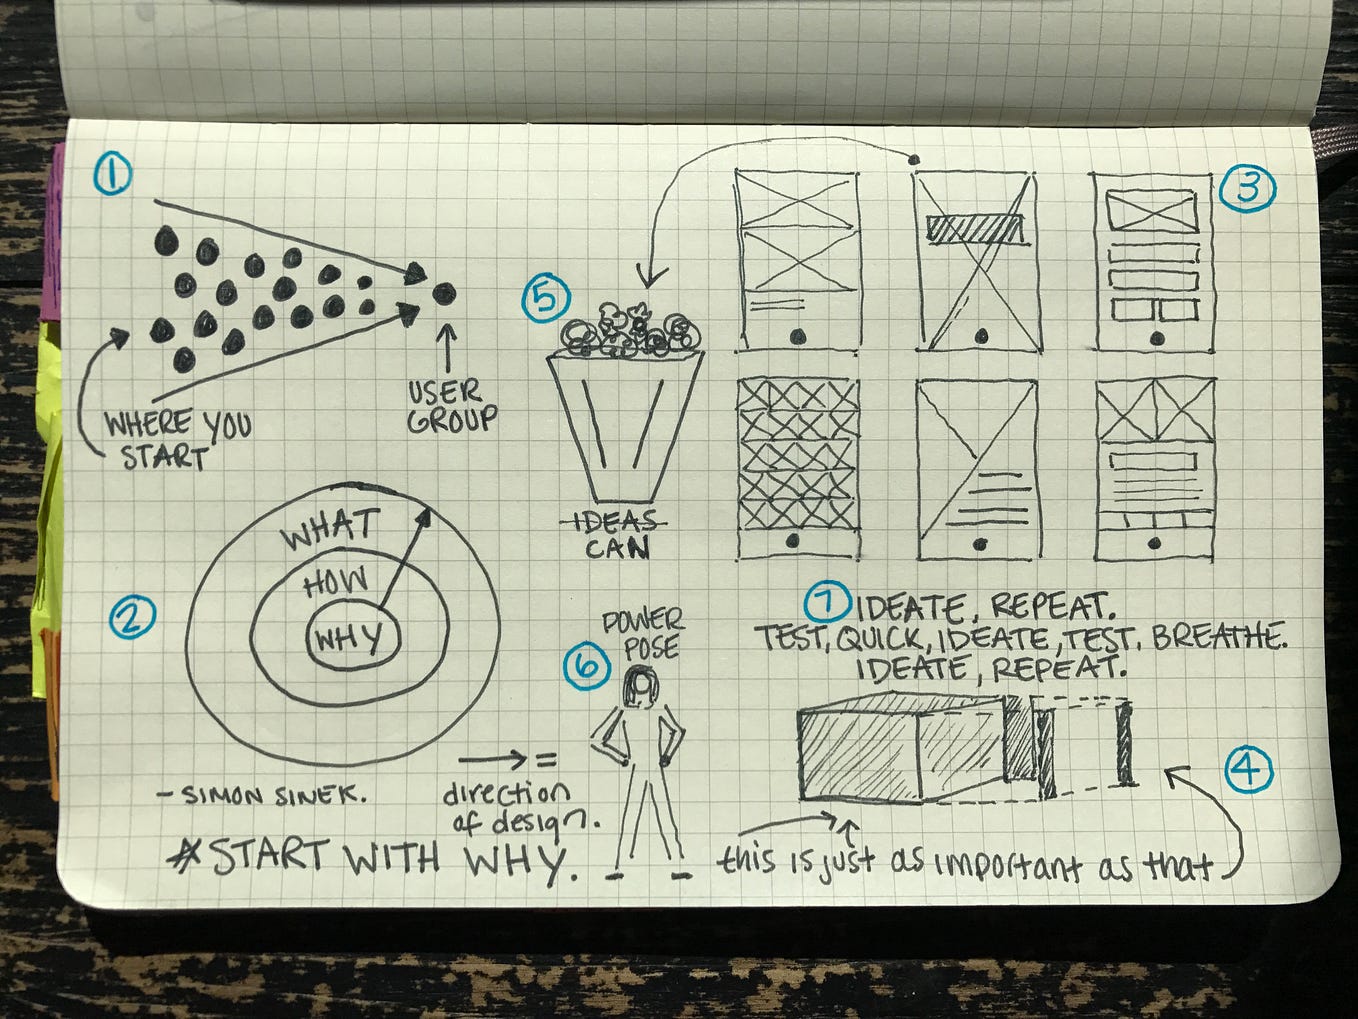 1
WHERE YOU
START
USER
GROUP
2
WHAT
HOW
WHY
- SIMON SINEK.
→ =
direction
of design.
*START WITH WHY.
3
5
IDEAS
CAN
6
POWER
POSE
7 IDEATE, REPEAT.
TEST, QUICK, IDEATE, TEST. BREATHE.
IDEATE, REPEAT.
4
this is just as important as that